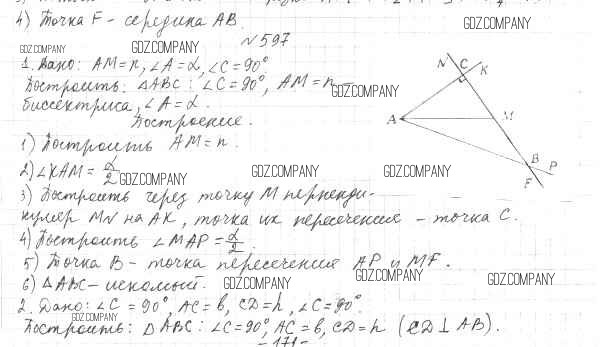 4) Точка F - середина AB.
GDZ.COMPANY
N 597
GDZ.COMPANY
GDZ.COMPANY
1. Дано: AM=n, ∠A=α, ∠C=90°.
Построить: △ABC: ∠C=90°, AM=n -
GDZ.COMPANY
биссектриса, ∠A=α.
Построение.
N C K
A M
B P
F
1) Построить AM=n.
GDZ.COMPANY
2) ∠KAM=α/2
GDZ.COMPANY
GDZ.COMPANY
GDZ.COMPANY
3) Построить через точку M перпенди-
куляр MN на AK, точка их пересечения - точка C.
4) Построить ∠MAP=α/2.
5) Точка B - точка пересечения AP и MF.
6) △ABC - искомый.
GDZ.COMPANY
GDZ.COMPANY
GDZ.COMPANY
2. Дано: ∠C=90°, AC=b, CD=h, ∠C=90°.
GDZ.COMPANY
Построить: △ABC: ∠C=90°, AC=b, CD=h (CD⊥AB).
- 171 -